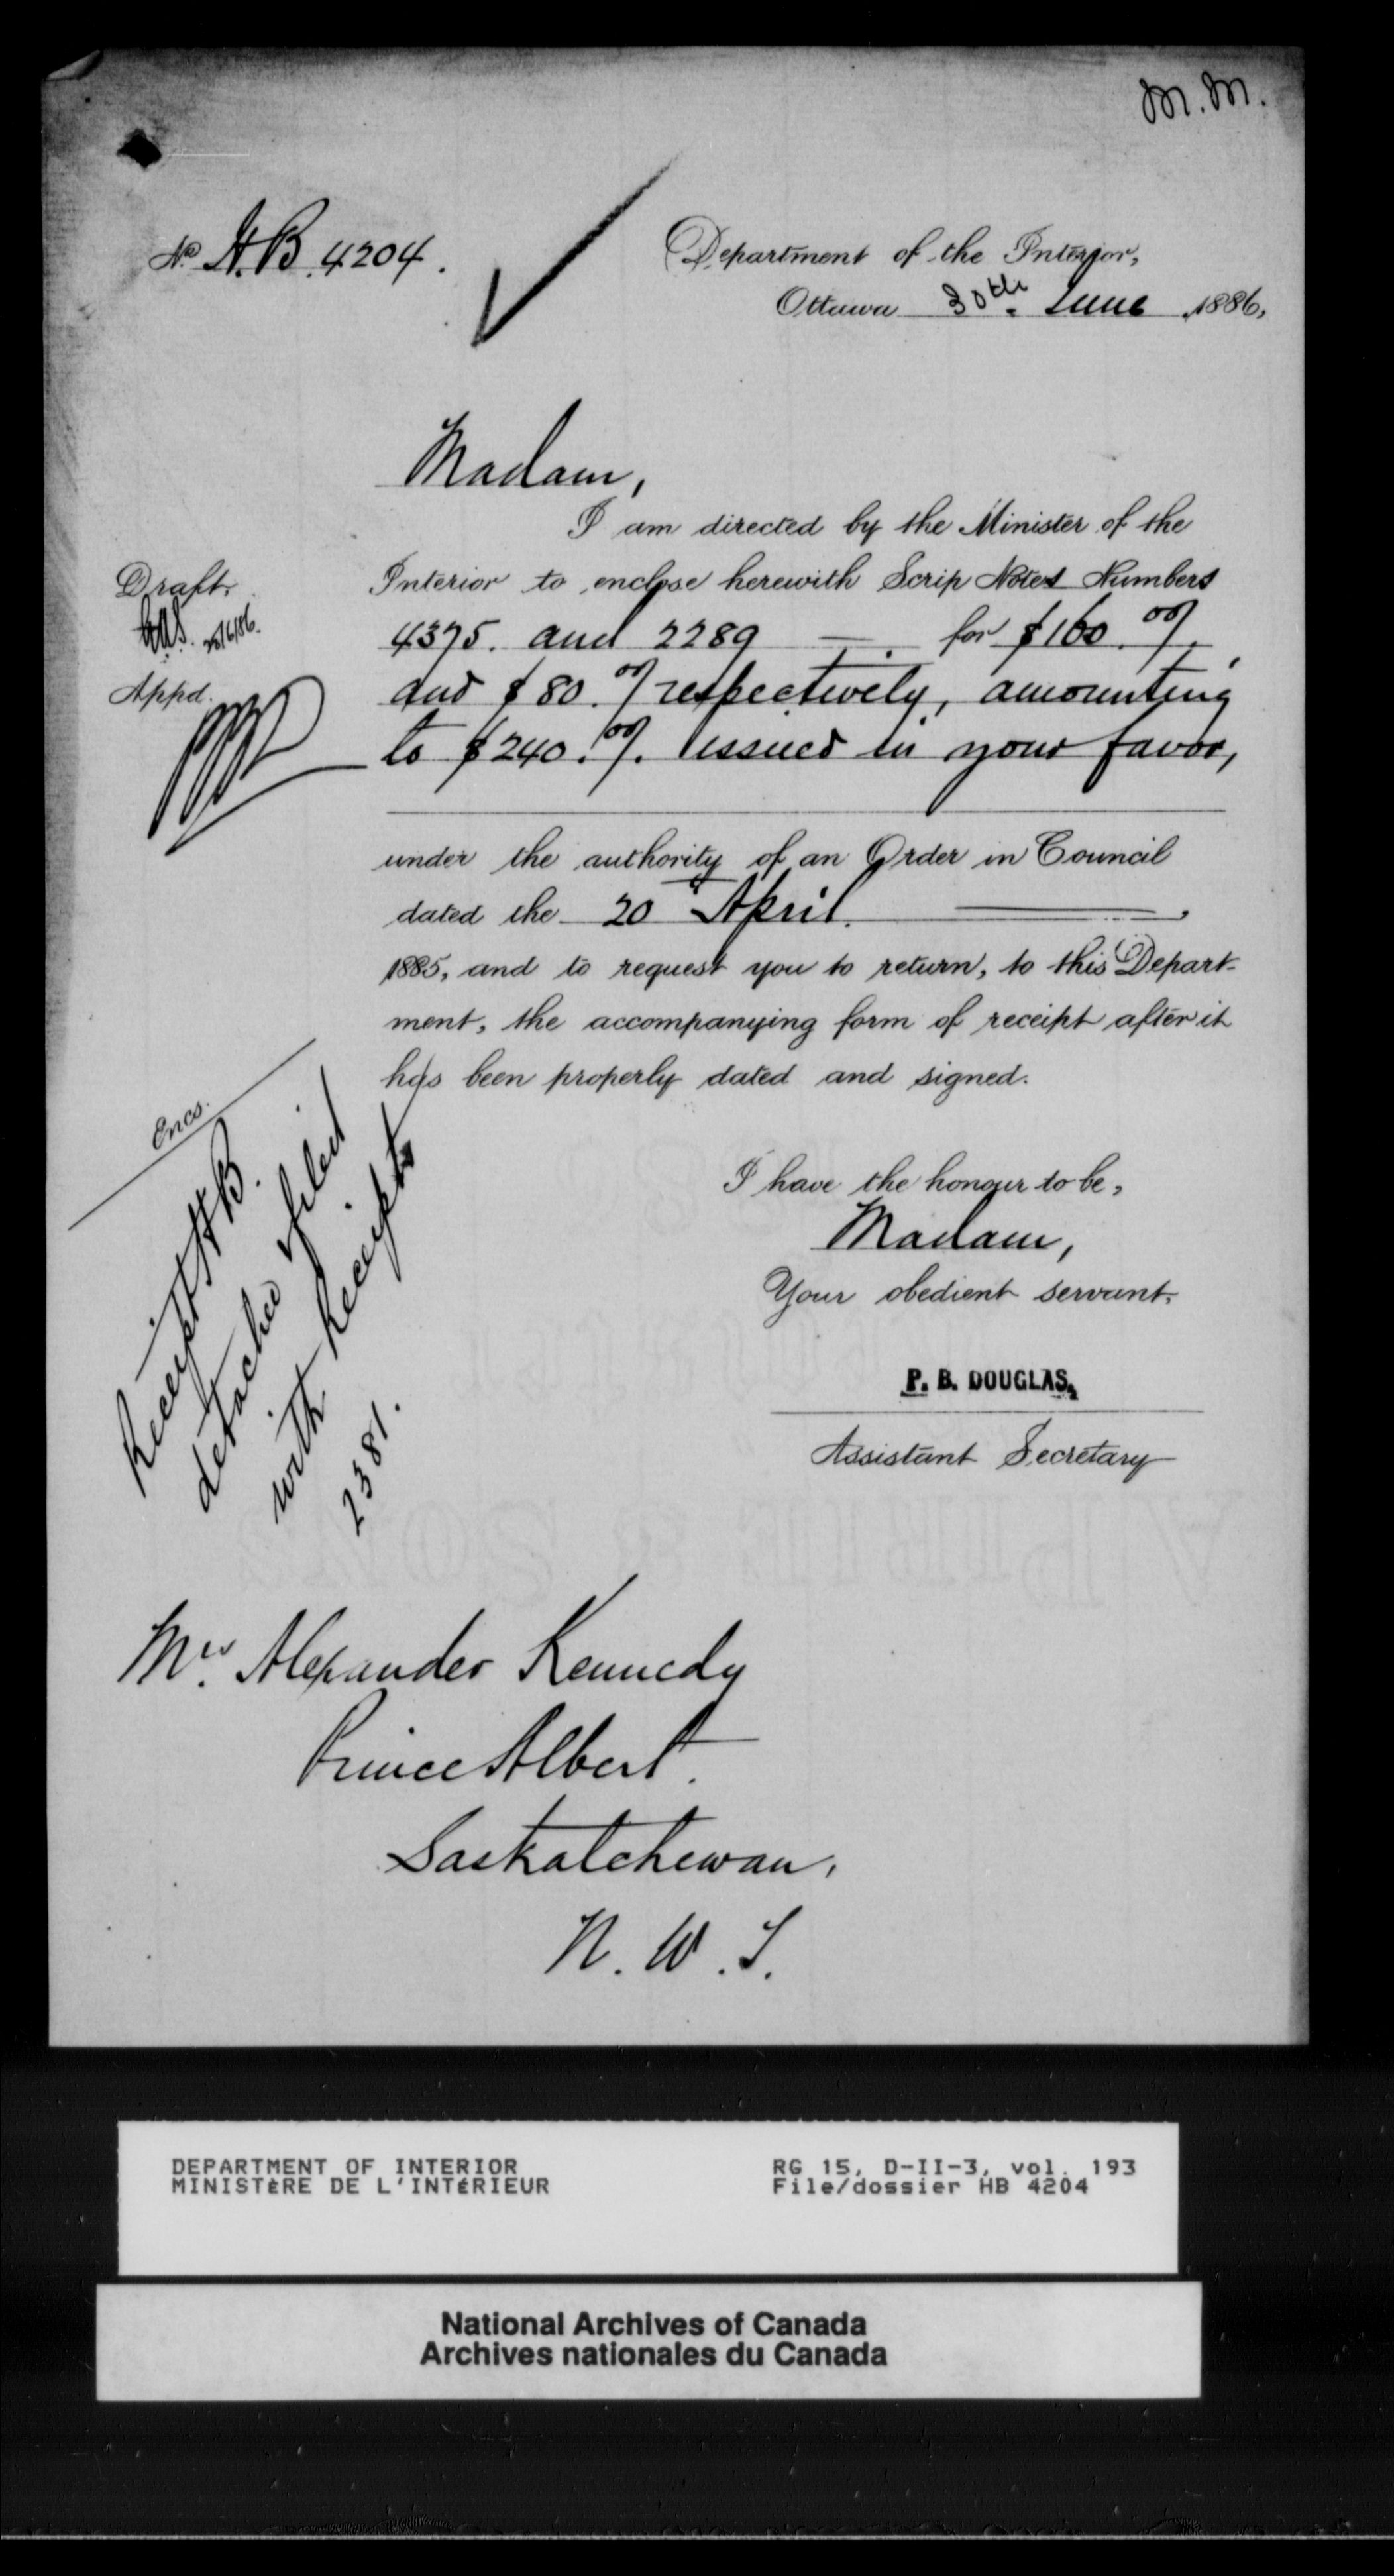 M.M.
No H.B. 4204.
Department of the Interior,
Ottawa 30th June 1886,
Madam,
I am directed by the Minister of the
Draft
Interior to enclose herewith Scrip Notes Numbers
25/6/86.
4375. and 2289 — . for $160.00/
Appd.
and $80.00/ respectively, amounting
to $240.00/. issued in your favor,
under the authority of an Order in Council
dated the 20 April.
1885, and to request you to return, to this Depart-
ment, the accompanying form of receipt after it
has been properly dated and signed.
Encs.
Receipt H B.
detached filed
with Receipts
2381.
I have the honour to be,
Madam,
Your obedient servant,
P. B. DOUGLAS,
Assistant Secretary
Mrs. Alexander Kennedy
Prince Albert.
Saskatchewan,
N. W. T.
DEPARTMENT OF INTERIOR
MINISTÈRE DE L'INTÉRIEUR
RG 15, D-II-3, vol. 193
File/dossier HB 4204
National Archives of Canada
Archives nationales du Canada